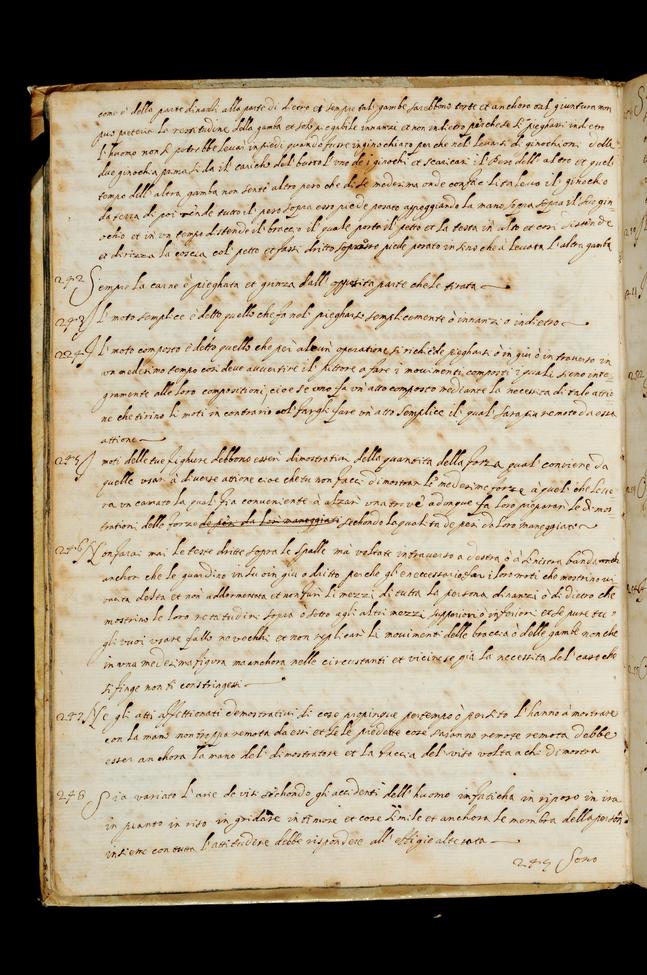 come è della parte dinanti alla parte di dietro et sempre tali gambe sarebbono torte et anchora tal giuntura non
può preterire la rettitudine della gamba et solo piegabile innanzi et non indietro perche se si piegharsi indietro
l'huomo non si potrebbe levar in piedi quando fusse inginochiato perche nel levarsi di ginochioni delle
due ginochia prima si da il caricho del busto l'uno de i ginochi et scaricasi il peso dello altro et in quel
tempo dell'altra gamba non sente altro peso che di se medesima onde con facilita leva il ginochio
da terra di poi rende tutto il peso sopra esso piede posato appoggiando la mano sopra il suo gin
ochio et in un tempo distende il braccio il quale porta il petto et la testa in alto et così distende
et dirizza la coscia col petto et fassi dritto sopra esso piede posato insino che à levata l'altra gamba
242 Sempre la carne è pieghata et grinza dall'opposita parte che le tirata
243 Il moto semplice è detto quello che fa nel pieghare semplicemente ò innanzi o indietro
224 Il moto composto è detto quello che per alcun operatione si richiede piegharsi ò in giù ò in traverso in
un medesimo tempo così deve avvertire il pittore a fare i movimenti composti i quali sieno inte-
gramente alle loro compositioni cioe se uno fa un'atto composto mediante la necessita di tale attio
ne che tu non l'imiti in contrario col fargli fare un'atto semplice il qual sara più remoto da essa
attione
245 I moti delle tue fighure debbono esseri dimostrativi della quantita della forza qual conviene da
quelle usar à diverse attione cioe che tu non facci dimostrar le medesime forze à quel che leve-
ra un carrato la qual fia conveniente à alzar una trave adunque fa loro preparar le dimos-
trationi delle forze de pesi da lor maneggiati sechondo la qualita de pesi da loro maneggiati
246 Non farai mai le teste dritte sopra le spalle ma voltate intraverso a destra ò à sinistra banda
anchor che le guardino in su o in giù o a dritto perche gli e necessario fare i loro moti che mostrino vi
vacita desta et non addormentata et non fari li mezzi di tutta la persona dinanzi ò di dietro che
mostrino le loro rettitudini sopra o sotto agli altri mezzi superiori ò inferiori et se pure tu
gli vuoi usare fallo ne vecchi et non replicari li movimenti delle braccia ò delle gambe non che
in una medesima figura ma anchora nelle circustanti et vicine se già la necessita del caso che
si finge non ti constringessi
247 Ne gli atti affettionati demostrativi di cose propinque per tempo ò per sito l'hanno à mostrare
con la mano non troppa remota da essi et se le predette cose saranno remote remota debbe
esser anchora la mano del dimostratore et la faccia del viso volta a chi dimostra
248 Sia variato l'arie de visi sechondo gli accidenti dell'huomo in faticha in riposo in ira
in pianto in riso in gridare in timore et cose simile et anchora le membra della persona
insieme con tutta l'attitudine debbe rispondere all'effigie alterata
249 Sono